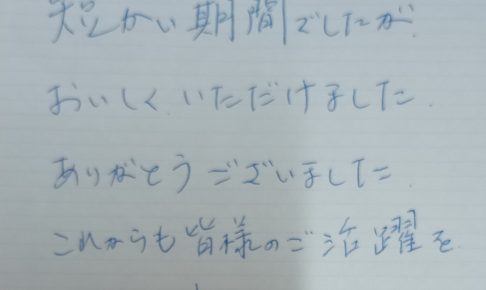 短かい期間でしたが
おいしく、いただけました。
ありがとうございました。
これからも皆様のご活躍を